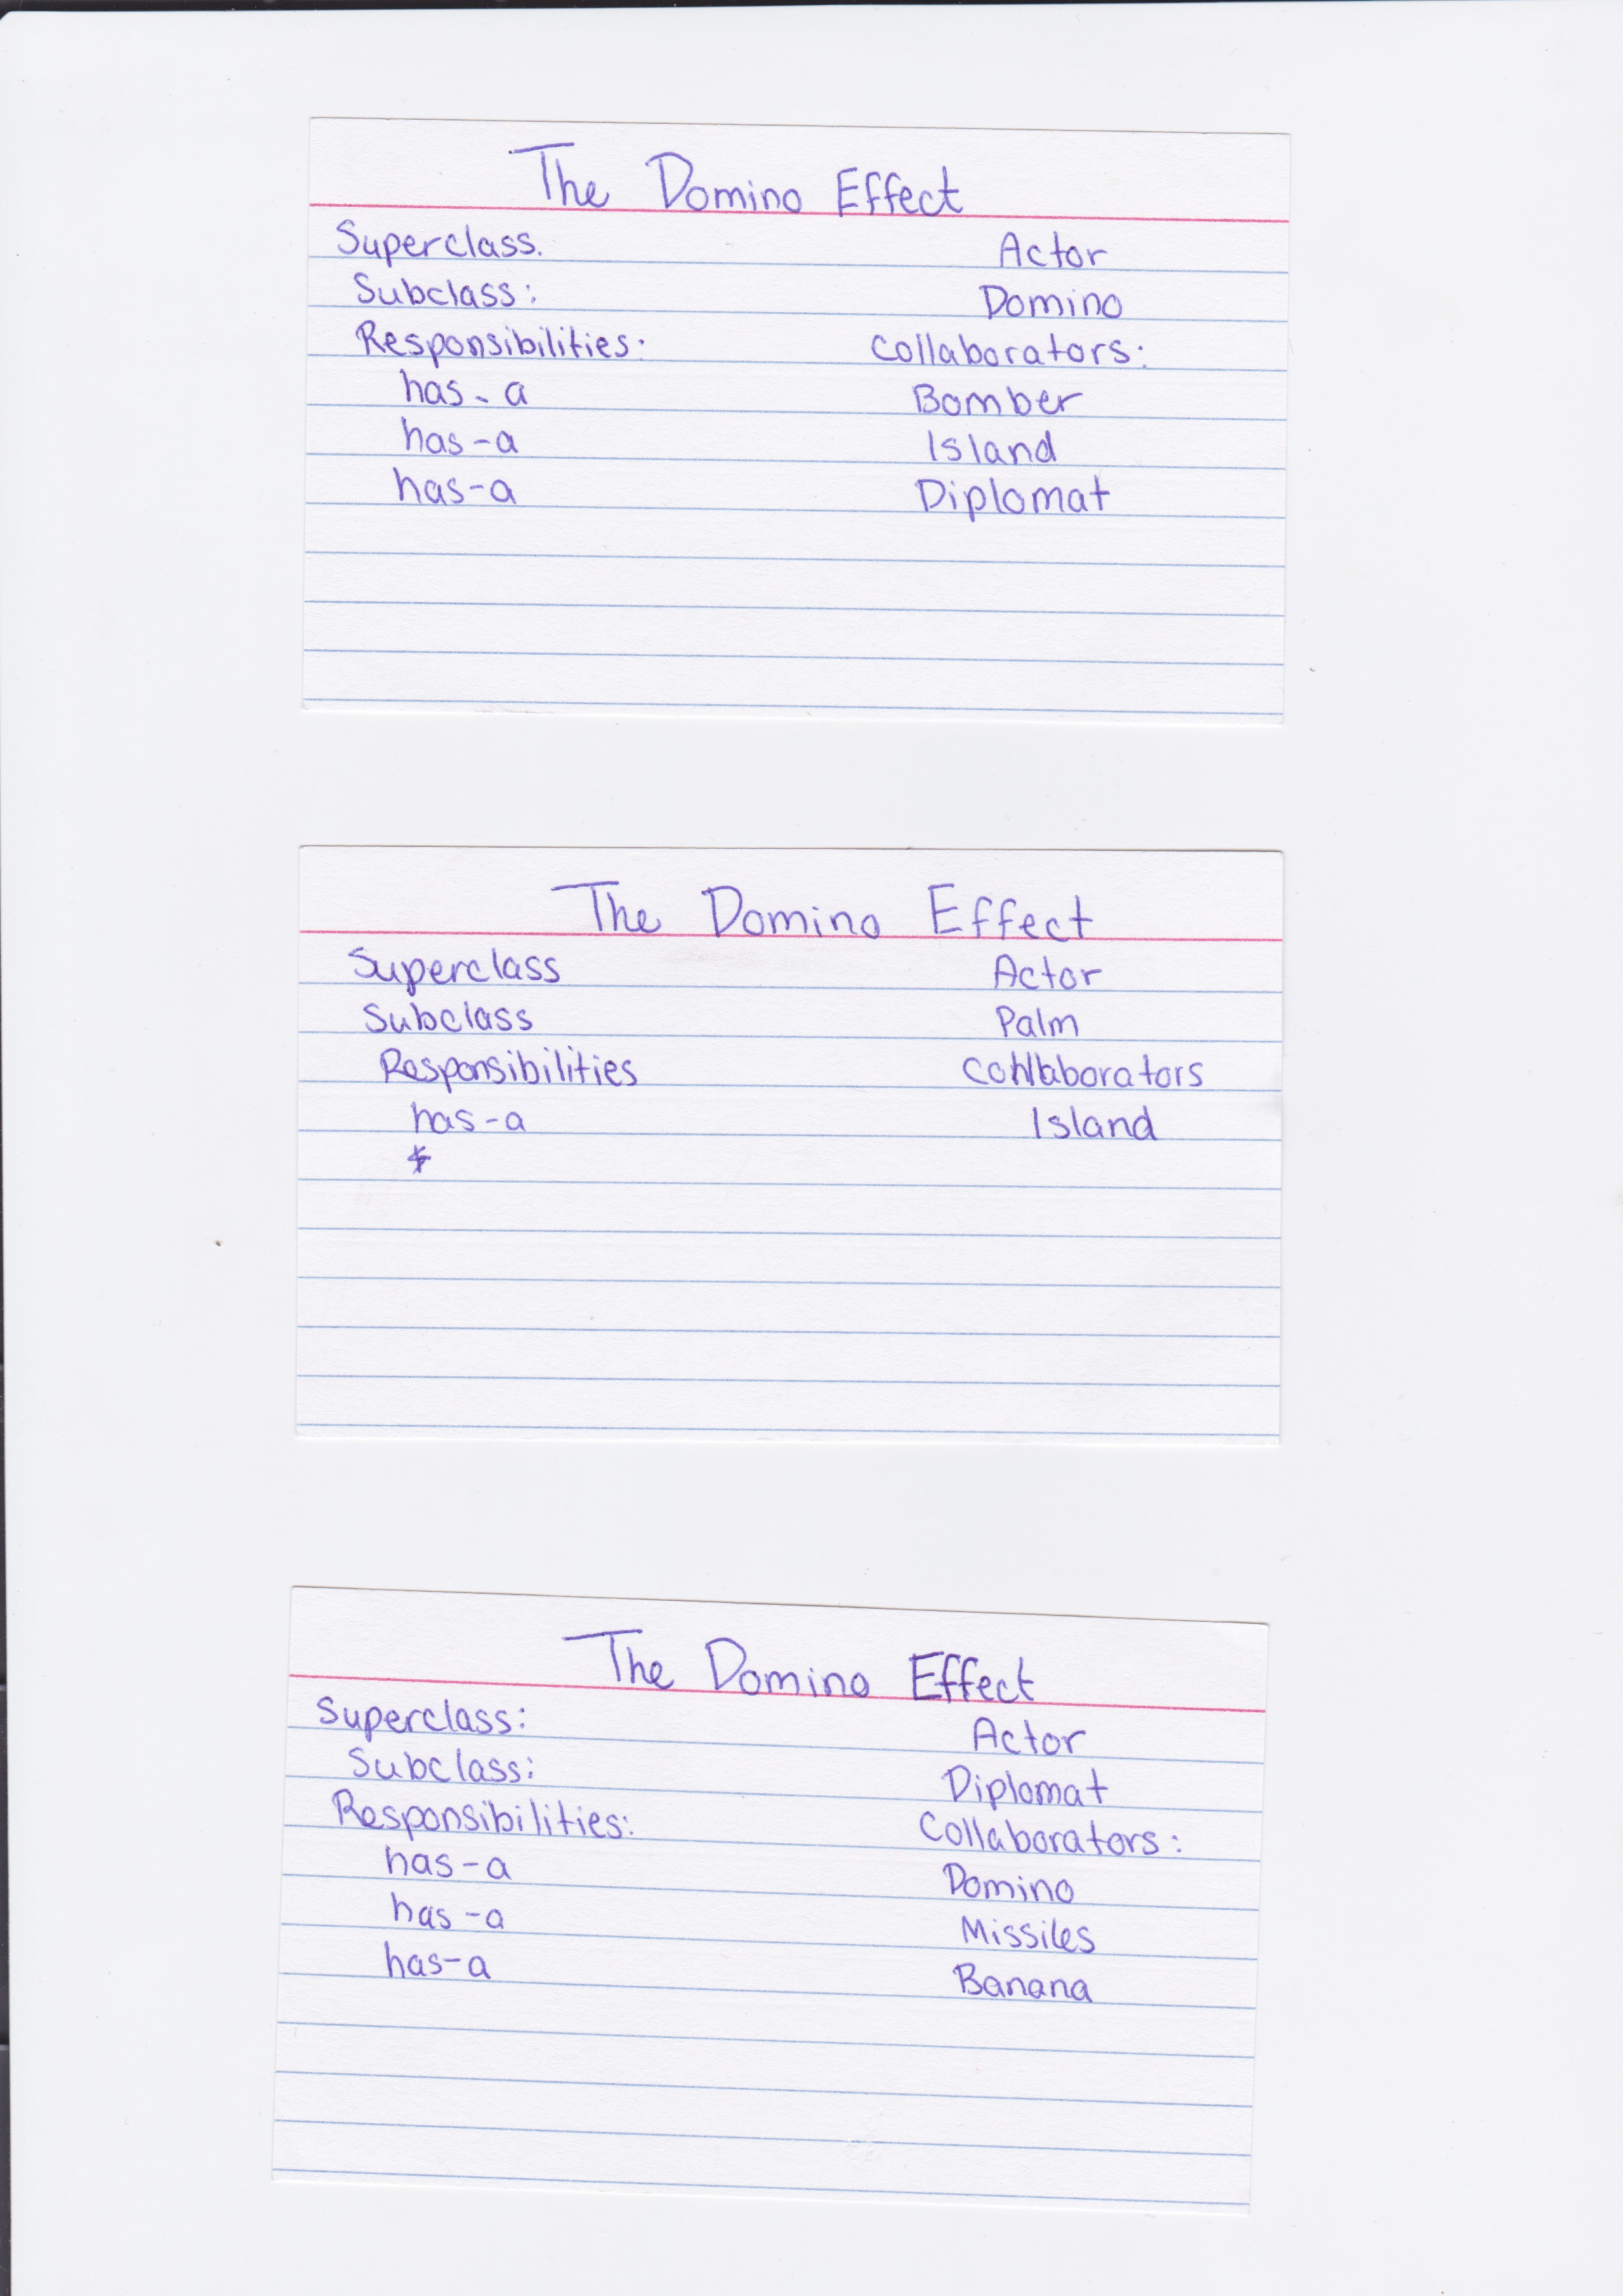 The Domino Effect
Superclass. Actor
Subclass: Domino
Responsibilities: Collaborators:
has-a Bomber
has-a Island
has-a Diplomat
The Domino Effect
Superclass Actor
Subclass Palm
Responsibilities Collaborators
has-a Island
The Domino Effect
Superclass: Actor
Subclass: Diplomat
Responsibilities: Collaborators:
has-a Domino
has-a Missiles
has-a Banana